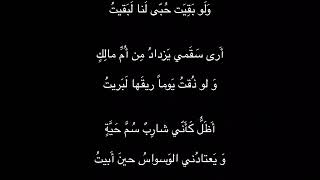 وَلَو بَقِيَت حُبّى لَنا لَبَقيتُ
أَرى سَقَمي يَزدادُ مِن أُمِّ مالِكٍ
وَ لو ذُقتُ يَوماً ريقَها لَبَريتُ
أَظَلُّ كَأَنّي شارِبٌ سُمَّ حَيَّةٍ
وَ يَعتادُني الوَسواسُ حينَ أَبيتُ